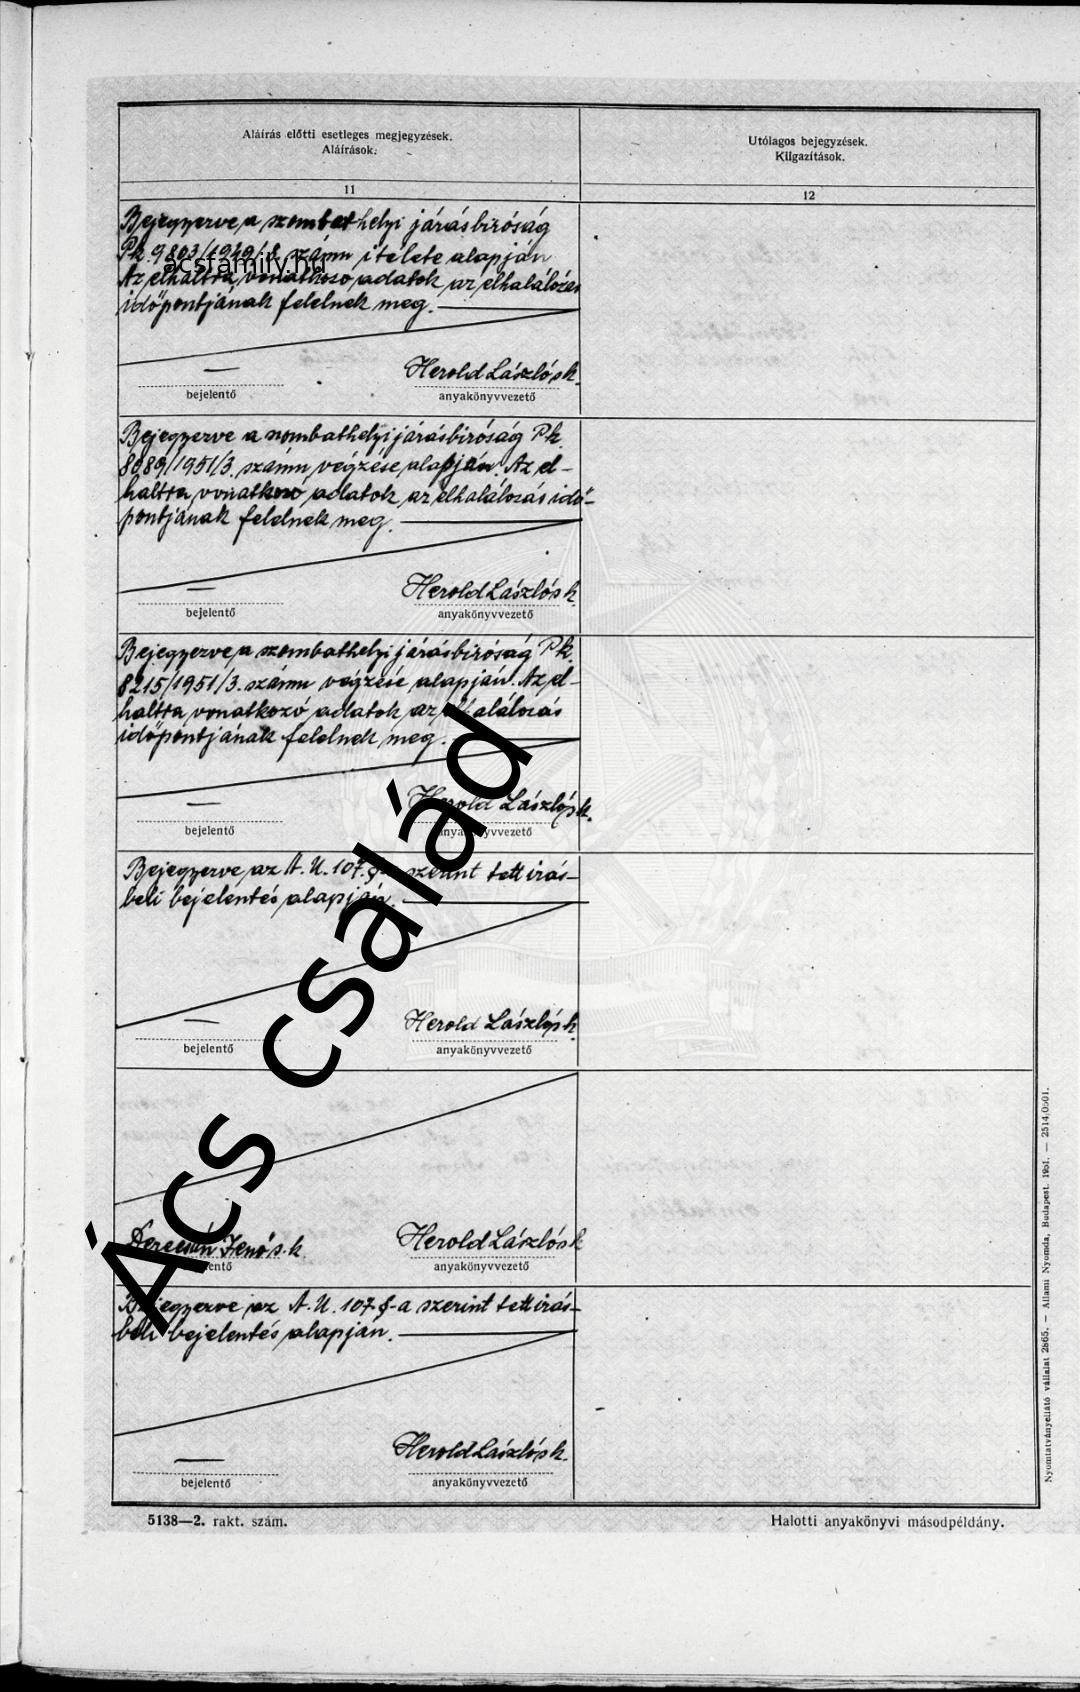 Aláírás előtti esetleges megjegyzések.
Aláírások.
Utólagos bejegyzések.
Kiigazítások.
11
12
Bejegyezve a szombathelyi járásbiróság
Pk. 9803/1949/8. számu itélete alapján
acsfamily.hu
Az elhaltra vonatkozó adatok az elhalálozás
időpontjának felelnek meg.
— Herold László s.k.
bejelentő anyakönyvvezető
Bejegyezve a szombathelyi járásbiróság Pk.
8089/1951/3. számu végzése alapján. Az el-
haltra vonatkozó adatok az elhalálozás idő-
pontjának felelnek meg.
— Herold László s.k.
bejelentő anyakönyvvezető
Bejegyezve a szombathelyi járásbiróság Pk.
8215/1951/3. számu végzése alapján. Az el-
haltra vonatkozó adatok az elhalálozás
időpontjának felelnek meg.
— Herold László s.k.
bejelentő anyakönyvvezető
Bejegyezve az A. U. 107. §-a szerint tett irás-
beli bejelentés alapján.
— Herold László s.k.
bejelentő anyakönyvvezető
Ács család
Jenő s.k. Herold László s.k.
bejelentő anyakönyvvezető
Bejegyezve az A. U. 107. §-a szerint tett irás-
beli bejelentés alapján.
— Herold László s.k.
bejelentő anyakönyvvezető
5138—2. rakt. szám.
Halotti anyakönyvi másodpéldány.
Nyomtatványellátó vállalat 2865. — Állami Nyomda, Budapest. 1951. — 2514.0501.